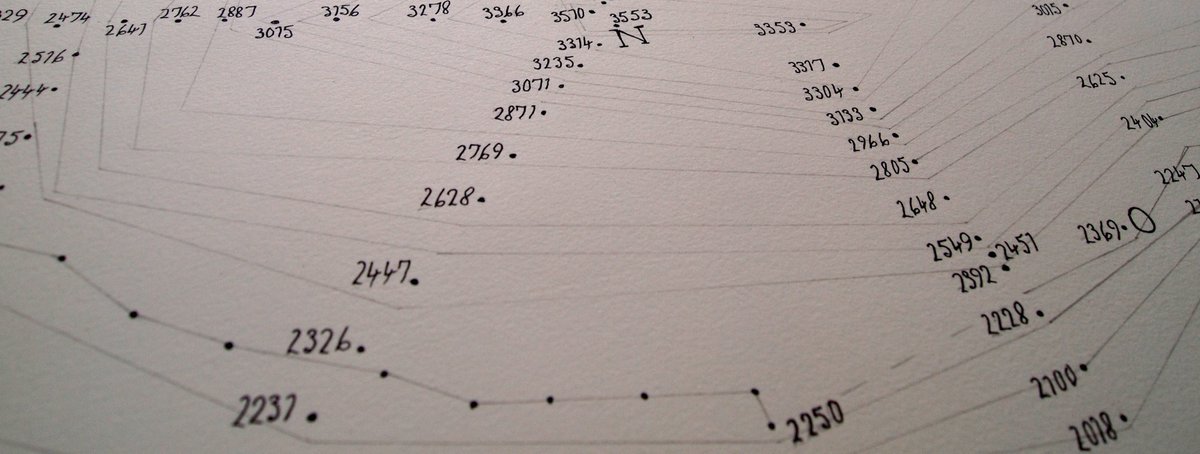 2474
2647
2762
2887
3075
3156
3278
3366
3510
3553
N
3314
3353
3015
2870
2516
3235
3317
2625
2444
3071
3304
2871
3133
2404
2966
2769
2805
2628
2648
2247
2369
O
2549
2451
2447
2392
2228
2326
2100
2237
2250
2018